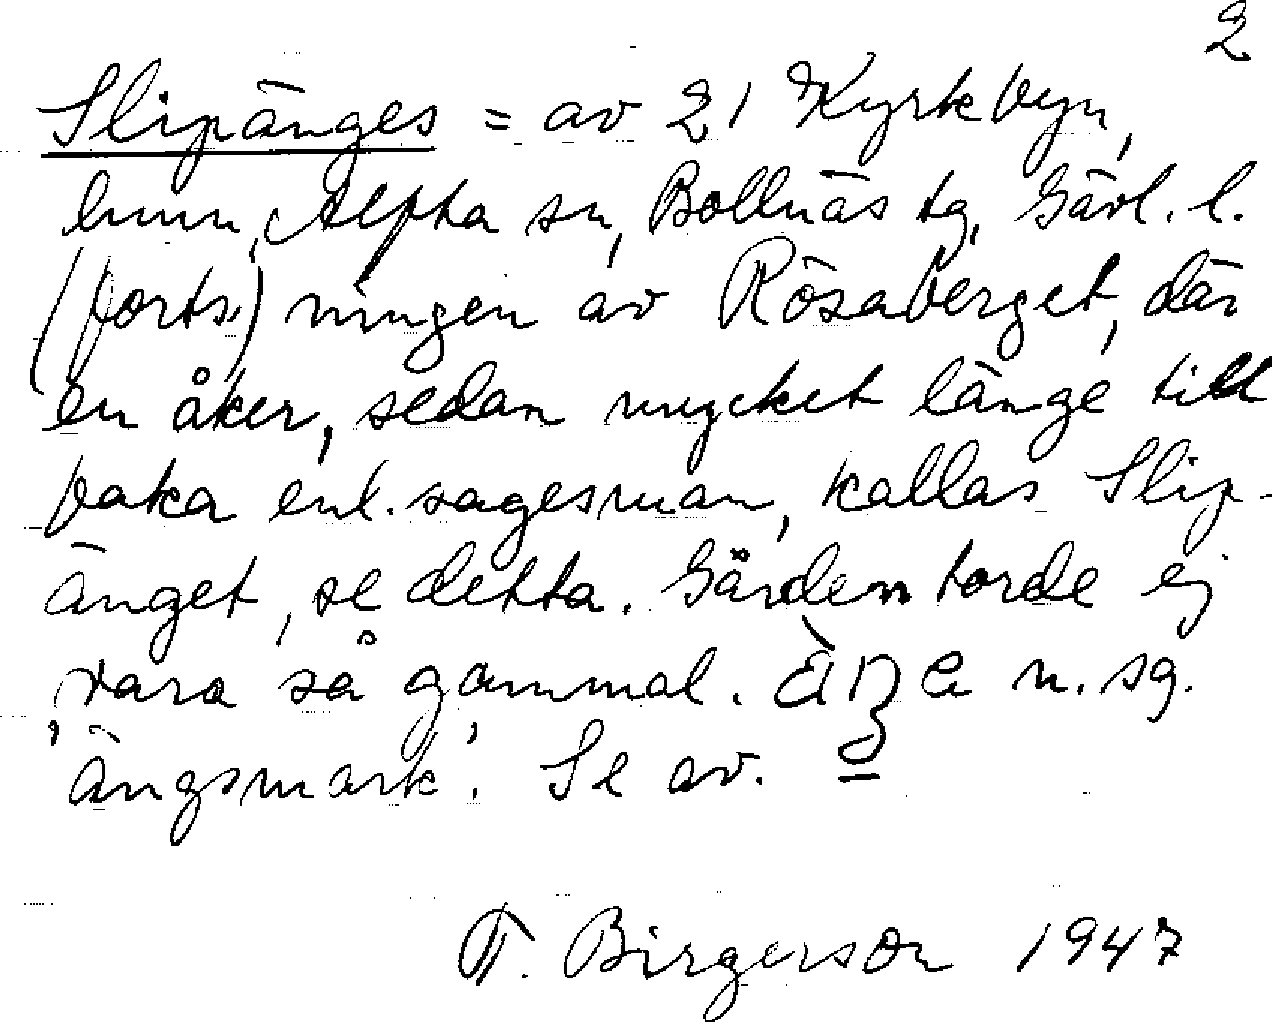 2
Slipänges = av 21 Kyrkbyn,
hmn, Alfta sn, Bollnäs tg, Gävl. l.
(forts.) ningen av Rösaberget, där
en åker, sedan mycket länge till
baka enl. sagesman, kallas Slip-
änget, se detta. Gården torde ej
vara så gammal. n. sg.
'ängsmark'. Se av.
F. Birgerson 1947